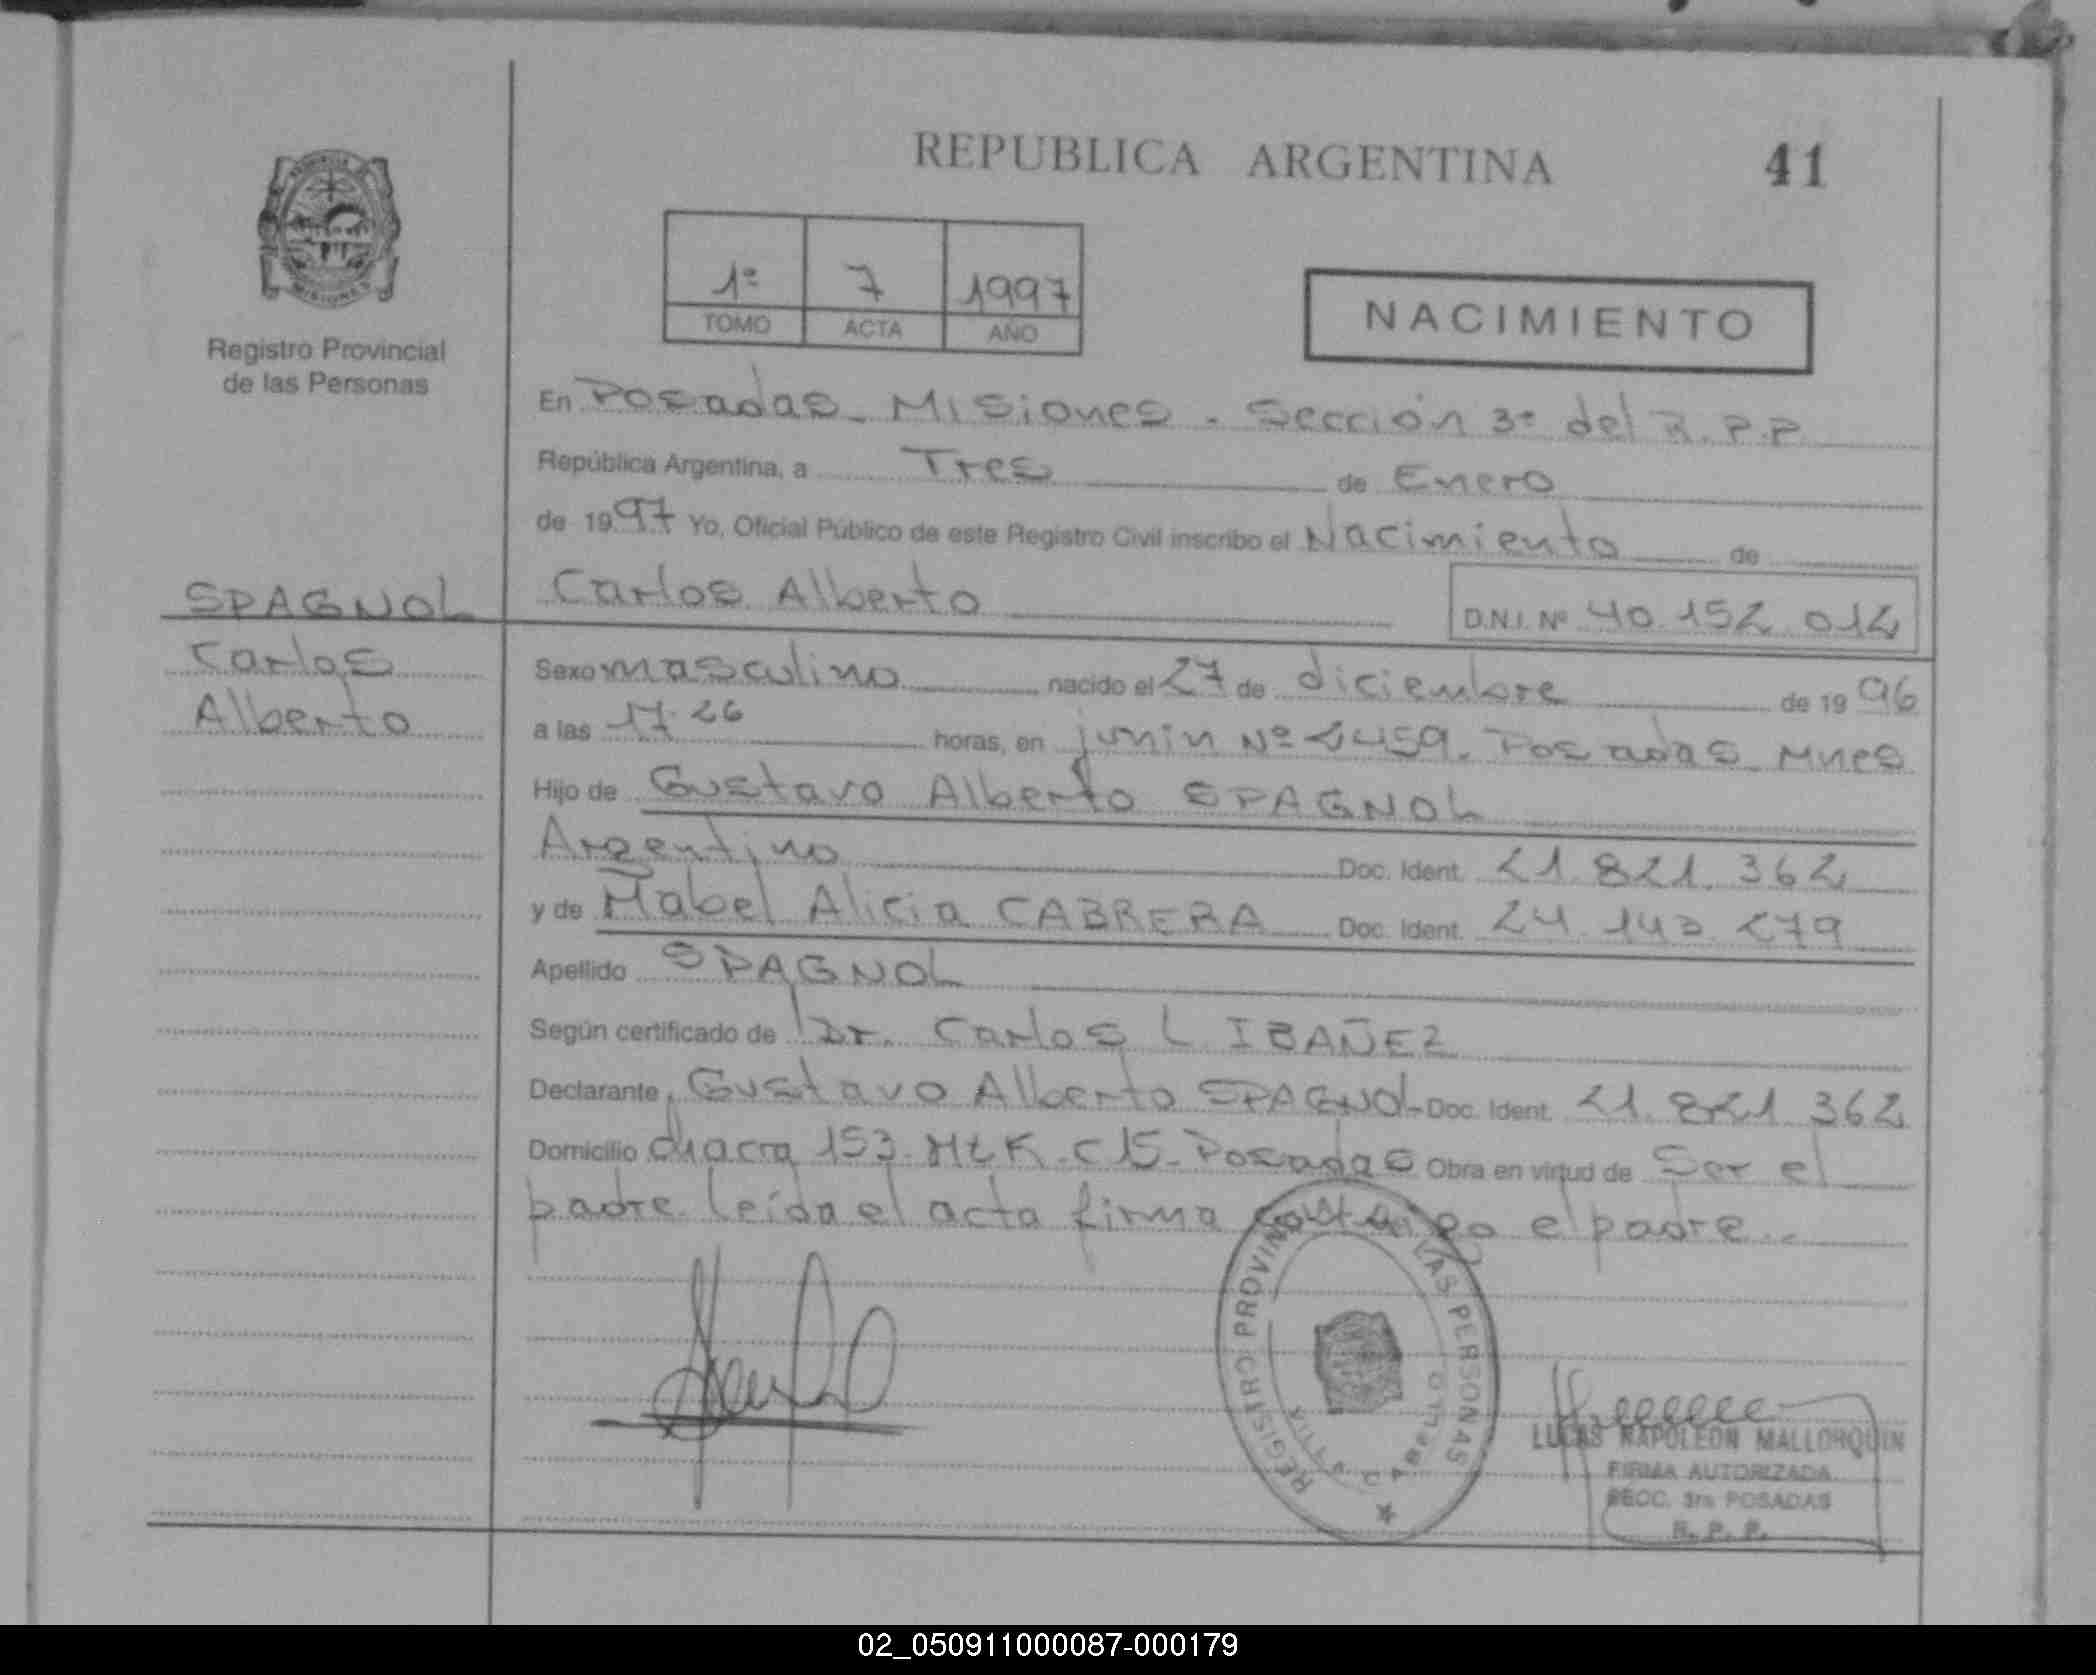 REPUBLICA ARGENTINA 41
MISIONES
Registro Provincial
de las Personas
1º 7 1997
TOMO ACTA AÑO
NACIMIENTO
En Posadas - Misiones - Sección 3ª del R.P.P.
República Argentina, a Tres de Enero
de 1997 Yo, Oficial Público de este Registro Civil inscribo el Nacimiento de
SPAGNOL
Carlos
Alberto
Carlos Alberto D.N.I. Nº 40.152.012
Sexo masculino nacido el 27 de diciembre de 1996
a las 17.26 horas, en junin Nº 2459. Posadas Mnes
Hijo de Gustavo Alberto SPAGNOL
Argentino Doc. Ident. 21.821.362
y de Mabel Alicia CABRERA Doc. Ident. 24.143.279
Apellido SPAGNOL
Según certificado de Dr. Carlos L IBAÑEZ
Declarante Gustavo Alberto SPAGNOL Doc. Ident. 21.821.362
Domicilio chacra 153 - MZ K - C 15 - Posadas Obra en virtud de Ser el
padre. Leída el acta firma conmigo el padre..
REGISTRO PROVIN LAS PERSONAS
LUCAS NAPOLEON MALLORQUIN
FIRMA AUTORIZADA
SECC. 3ra POSADAS
R. P. P.
02_050911000087-000179